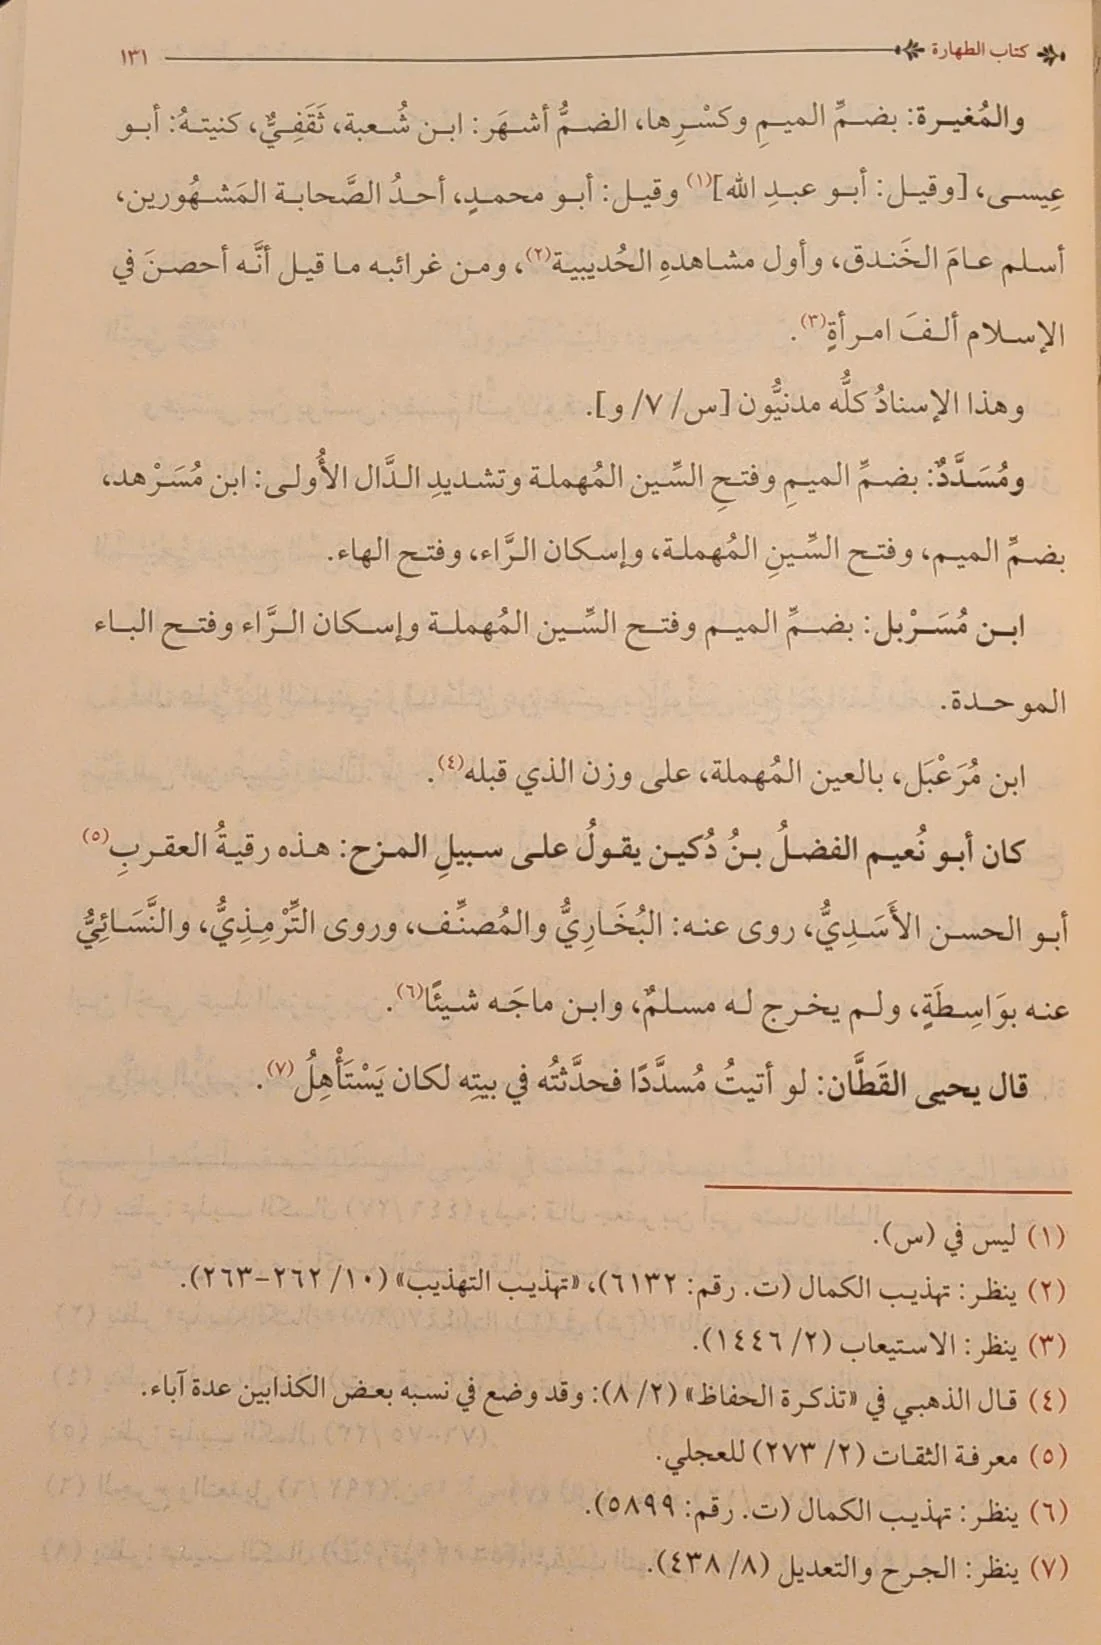 كتاب الطهارة ١٣١
والمُغيرة: بضمِّ الميمِ وكسْرِها، الضمُّ أشهَر: ابن شُعبة، ثَقَفِيٌّ، كنيتهُ: أبو
عِيسى، [وقيل: أبو عبدِ الله](١) وقيل: أبو محمدٍ، أحدُ الصَّحابة المَشهُورين،
أسلم عامَ الخَندق، وأول مشاهدهِ الحُديبية(٢)، ومن غرائبه ما قيل أنَّه أحصنَ في
الإسلام ألفَ امرأةٍ(٣).
وهذا الإسنادُ كلُّه مدنيُّون [س/ ٧/ و].
ومُسَدَّدٌ: بضمِّ الميمِ وفتحِ السِّين المُهملة وتشديدِ الدَّال الأُولى: ابن مُسَرْهد،
بضمِّ الميم، وفتح السِّينِ المُهملة، وإسكان الرَّاء، وفتح الهاء.
ابن مُسَرْبل: بضمِّ الميم وفتح السِّين المُهملة وإسكان الرَّاء وفتح الباء
الموحدة.
ابن مُرَعْبَل، بالعين المُهملة، على وزن الذي قبله(٤).
كان أبو نُعيم الفضلُ بنُ دُكين يقولُ على سبيلِ المزح: هذه رقيةُ العقربِ(٥)
أبو الحسن الأَسَدِيُّ، روى عنه: البُخَارِيُّ والمُصنِّف، وروى التِّرْمِذِيُّ، والنَّسَائِيُّ
عنه بوَاسِطَةٍ، ولم يخرج له مسلمٌ، وابن ماجَه شيئًا(٦).
قال يحيى القَطَّان: لو أتيتُ مُسدَّدًا فحدَّثتُه في بيتِه لكان يَسْتَأْهِلُ(٧).
(١) ليس في (س).
(٢) ينظر: تهذيب الكمال (ت. رقم: ٦١٣٢)، «تهذيب التهذيب» (١٠/ ٢٦٢-٢٦٣).
(٣) ينظر: الاستيعاب (٢/ ١٤٤٦).
(٤) قال الذهبي في «تذكرة الحفاظ» (٢/ ٨): وقد وضع في نسبه بعض الكذابين عدة آباء.
(٥) معرفة الثقات (٢/ ٢٧٣) للعجلي.
(٦) ينظر: تهذيب الكمال (ت. رقم: ٥٨٩٩).
(٧) ينظر: الجرح والتعديل (٨/ ٤٣٨).